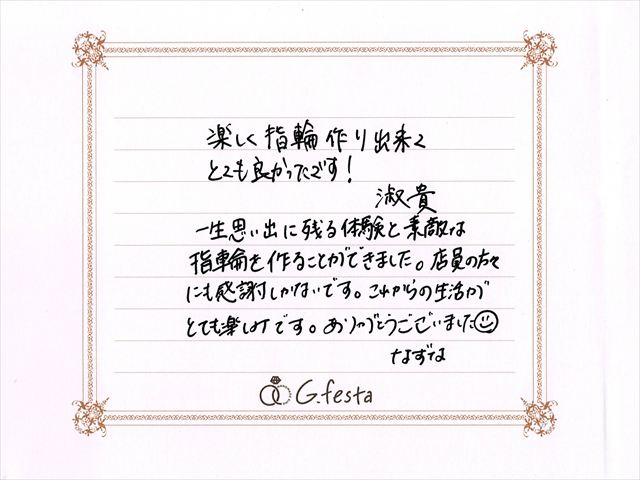 楽しく指輪作り出来て
とても良かったです!
淑貴
一生思い出に残る体験と素敵な
指輪を作ることができました。店員の方々
にも感謝しかないです。これからの生活が
とても楽しみです。ありがとうございました☺
なずな
G.festa